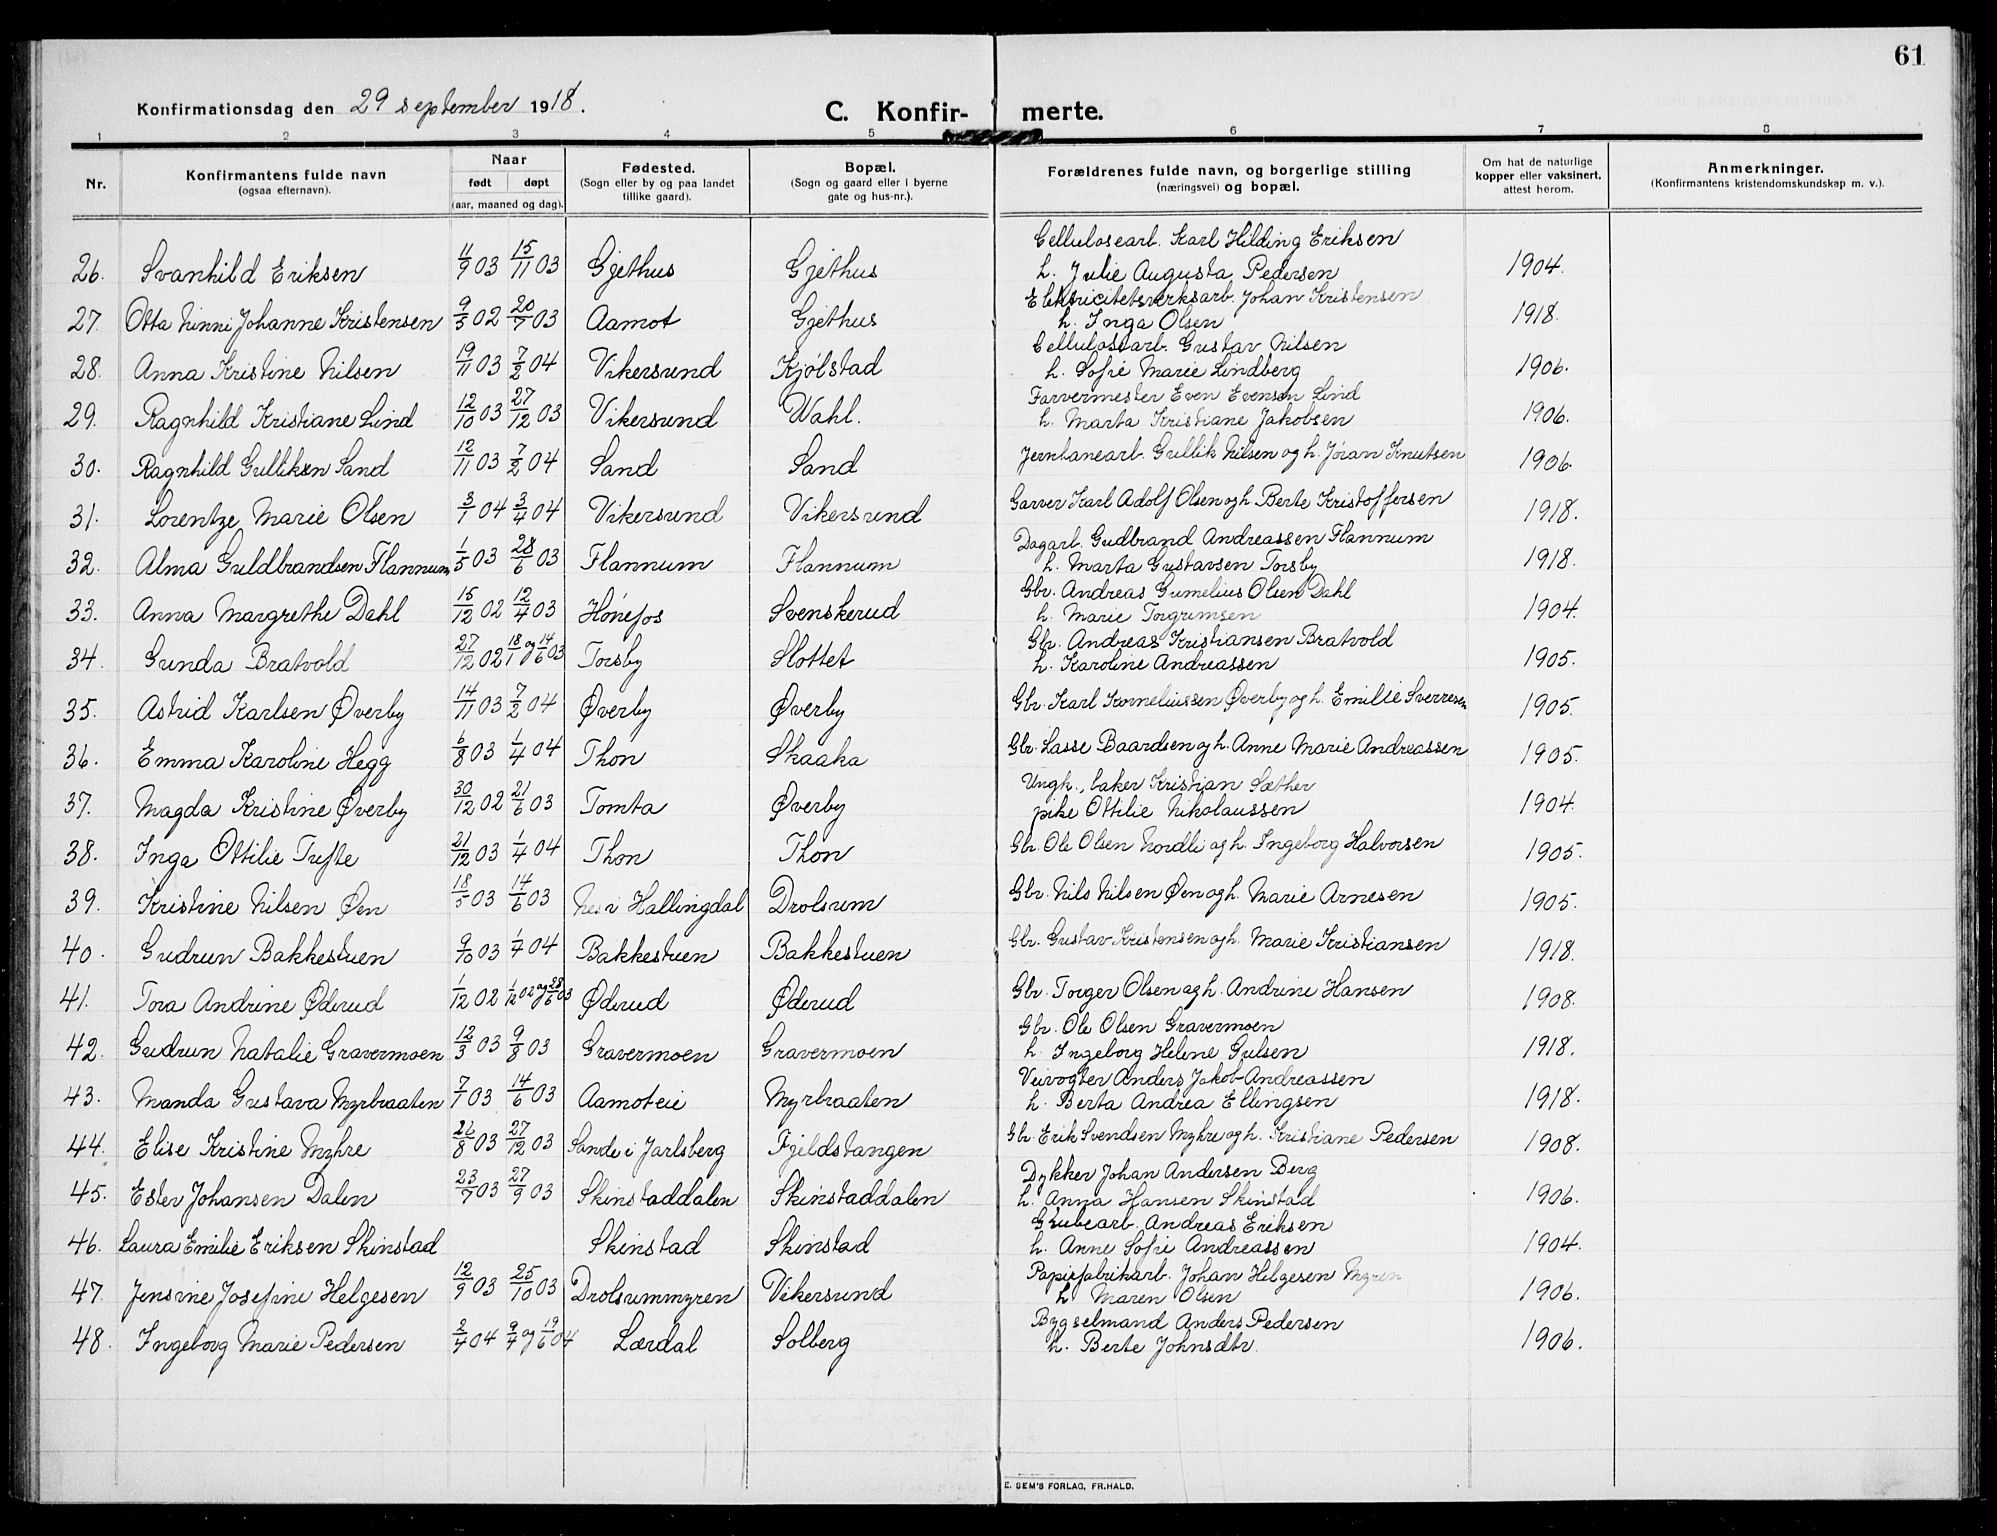 61
Konfirmationsdag den 29 september 1918.
C. Konfir- merte.
1 2 3 4 5 6 7 8
Nr.
Konfirmantens fulde navn
(ogsaa efternavn).
Naar
født døpt
(aar, maaned og dag).
Fødested.
(Sogn eller by og paa landet
tillike gaard).
Bopæl.
(Sogn og gaard eller i byerne
gate og hus-nr.).
Forældrenes fulde navn, og borgerlige stilling
(næringsvei) og bopæl.
Om hat de naturlige
kopper eller vaksinert,
attest herom.
Anmerkninger.
(Konfirmantens kristendomskundskap m. v.).
Cellulosearb. Karl Hilding Eriksen
26. Svanhild Eriksen 4/9 03 15/11 03 Gjethus Gjethus h. Julie Augusta Pedersen 1904.
Elektricitetsverksarb. Johan Kristensen
27. Otta Ninni Johanne Kristensen 9/5 02 20/7 03 Aamot Gjethus h. Inga Olsen 1918.
Cellulosearb. Gustav Nilsen
28. Anna Kristine Nilsen 19/11 03 7/2 04 Vikersund Kjølstad h. Sofie Marie Lindberg 1906.
Farvermester Even Evensen Lind
29. Ragnhild Kristiane Lind 12/10 03 27/12 03 Vikersund Wahl. h. Marta Kristiane Jakobsen 1906.
30. Ragnhild Gulliksen Sand 12/11 03 7/2 04 Sand Sand Jernbanearb. Gullik Nilsen og h. Jøran Knutsen 1906.
31. Lorentze Marie Olsen 3/1 04 3/4 04 Vikersund Vikersund Garver Karl Adolf Olsen og h. Berte Kristoffersen 1918.
Dagarb. Gudbrand Andreassen Flannum
32. Alma Guldbrandsen Flannum 1/5 03 28/6 03 Flannum Flannum h. Marta Gustavsen Torsby 1918.
Gbr. Andreas Gumelius Olsen Dahl
33. Anna Margrethe Dahl 15/12 02 12/4 03 Hønefos Svenskerud h. Marie Torgrimsen 1904.
Gbr. Andreas Kristiansen Bratvold
34. Gunda Bratvold 27/12 02 18/1 og 14/6 03 Torsby Slottet h. Karoline Andreassen 1905.
35. Astrid Karlsen Øverby 14/11 03 7/2 04 Øverby Øverby Gbr. Karl Korneliussen Øverby og h. Emilie Sverresen 1905.
36. Emma Karoline Hegg 6/8 03 1/4 04 Thon Skaaka Gbr. Lasse Baardsen og h. Anne Marie Andreassen 1905.
Ungk., baker Kristian Sæther
37. Magda Kristine Øverby 30/12 02 21/6 03 Tomta Øverby pike Ottilie Nikolaussen 1904.
38. Inga Ottilie Tufte 21/12 03 1/4 04 Thon Thon Gbr. Ole Olsen Nordli og h. Ingeborg Halvorsen 1905.
39. Kristine Nilsen Øen 18/5 03 14/6 03 Nes i Hallingdal Drolsum Gbr. Nils Nilsen Øen og h. Marie Arnesen 1905.
40. Gudrun Bakkestuen 9/10 03 1/4 04 Bakkestuen Bakkestuen Gbr. Gustav Kristensen og h. Marie Kristiansen 1918.
41. Tora Andrine Øderud 1/12 02 1/12 02 og 28/6 03 Øderud Øderud Gbr. Torger Olsen og h. Andrine Hansen 1908.
Gbr. Ole Olsen Gravermoen
42. Gudrun Natalie Gravermoen 12/3 03 9/8 03 Gravermoen Gravermoen h. Ingeborg Helene Gulsen 1918.
Veivogter Anders Jakob Andreassen
43. Manda Gustava Myrbraaten 7/1 03 14/6 03 Aamoteie Myrbraaten h. Berta Andrea Ellingsen 1918.
44. Elise Kristine Myhre 26/8 03 27/12 03 Sande i Jarlsberg Fjeldstangen Gbr. Erik Svendsen Myhre og h. Kristiane Pedersen 1908.
Dykker Johan Andersen Berg
45. Ester Johansen Dalen 23/7 03 27/9 03 Skinstaddalen Skinstaddalen h. Anna Hansen Skinstad 1906.
Grubearb. Andreas Eriksen
46. Laura Emilie Eriksen Skinstad Skinstad Skinstad h. Anne Sofie Andreassen 1904.
Papirfabrikarb. Johan Helgesen Myren
47. Jensine Josefine Helgesen 12/9 03 25/10 03 Drolsummyren Vikersund h. Maren Olsen 1906.
Bygselmand Anders Pedersen
48. Ingeborg Marie Pedersen 2/4 04 9/4 og 19/6 04 Lærdal Solberg h. Berte Johnsdtr. 1906.
E. SEM'S FORLAG, FR.HALD.